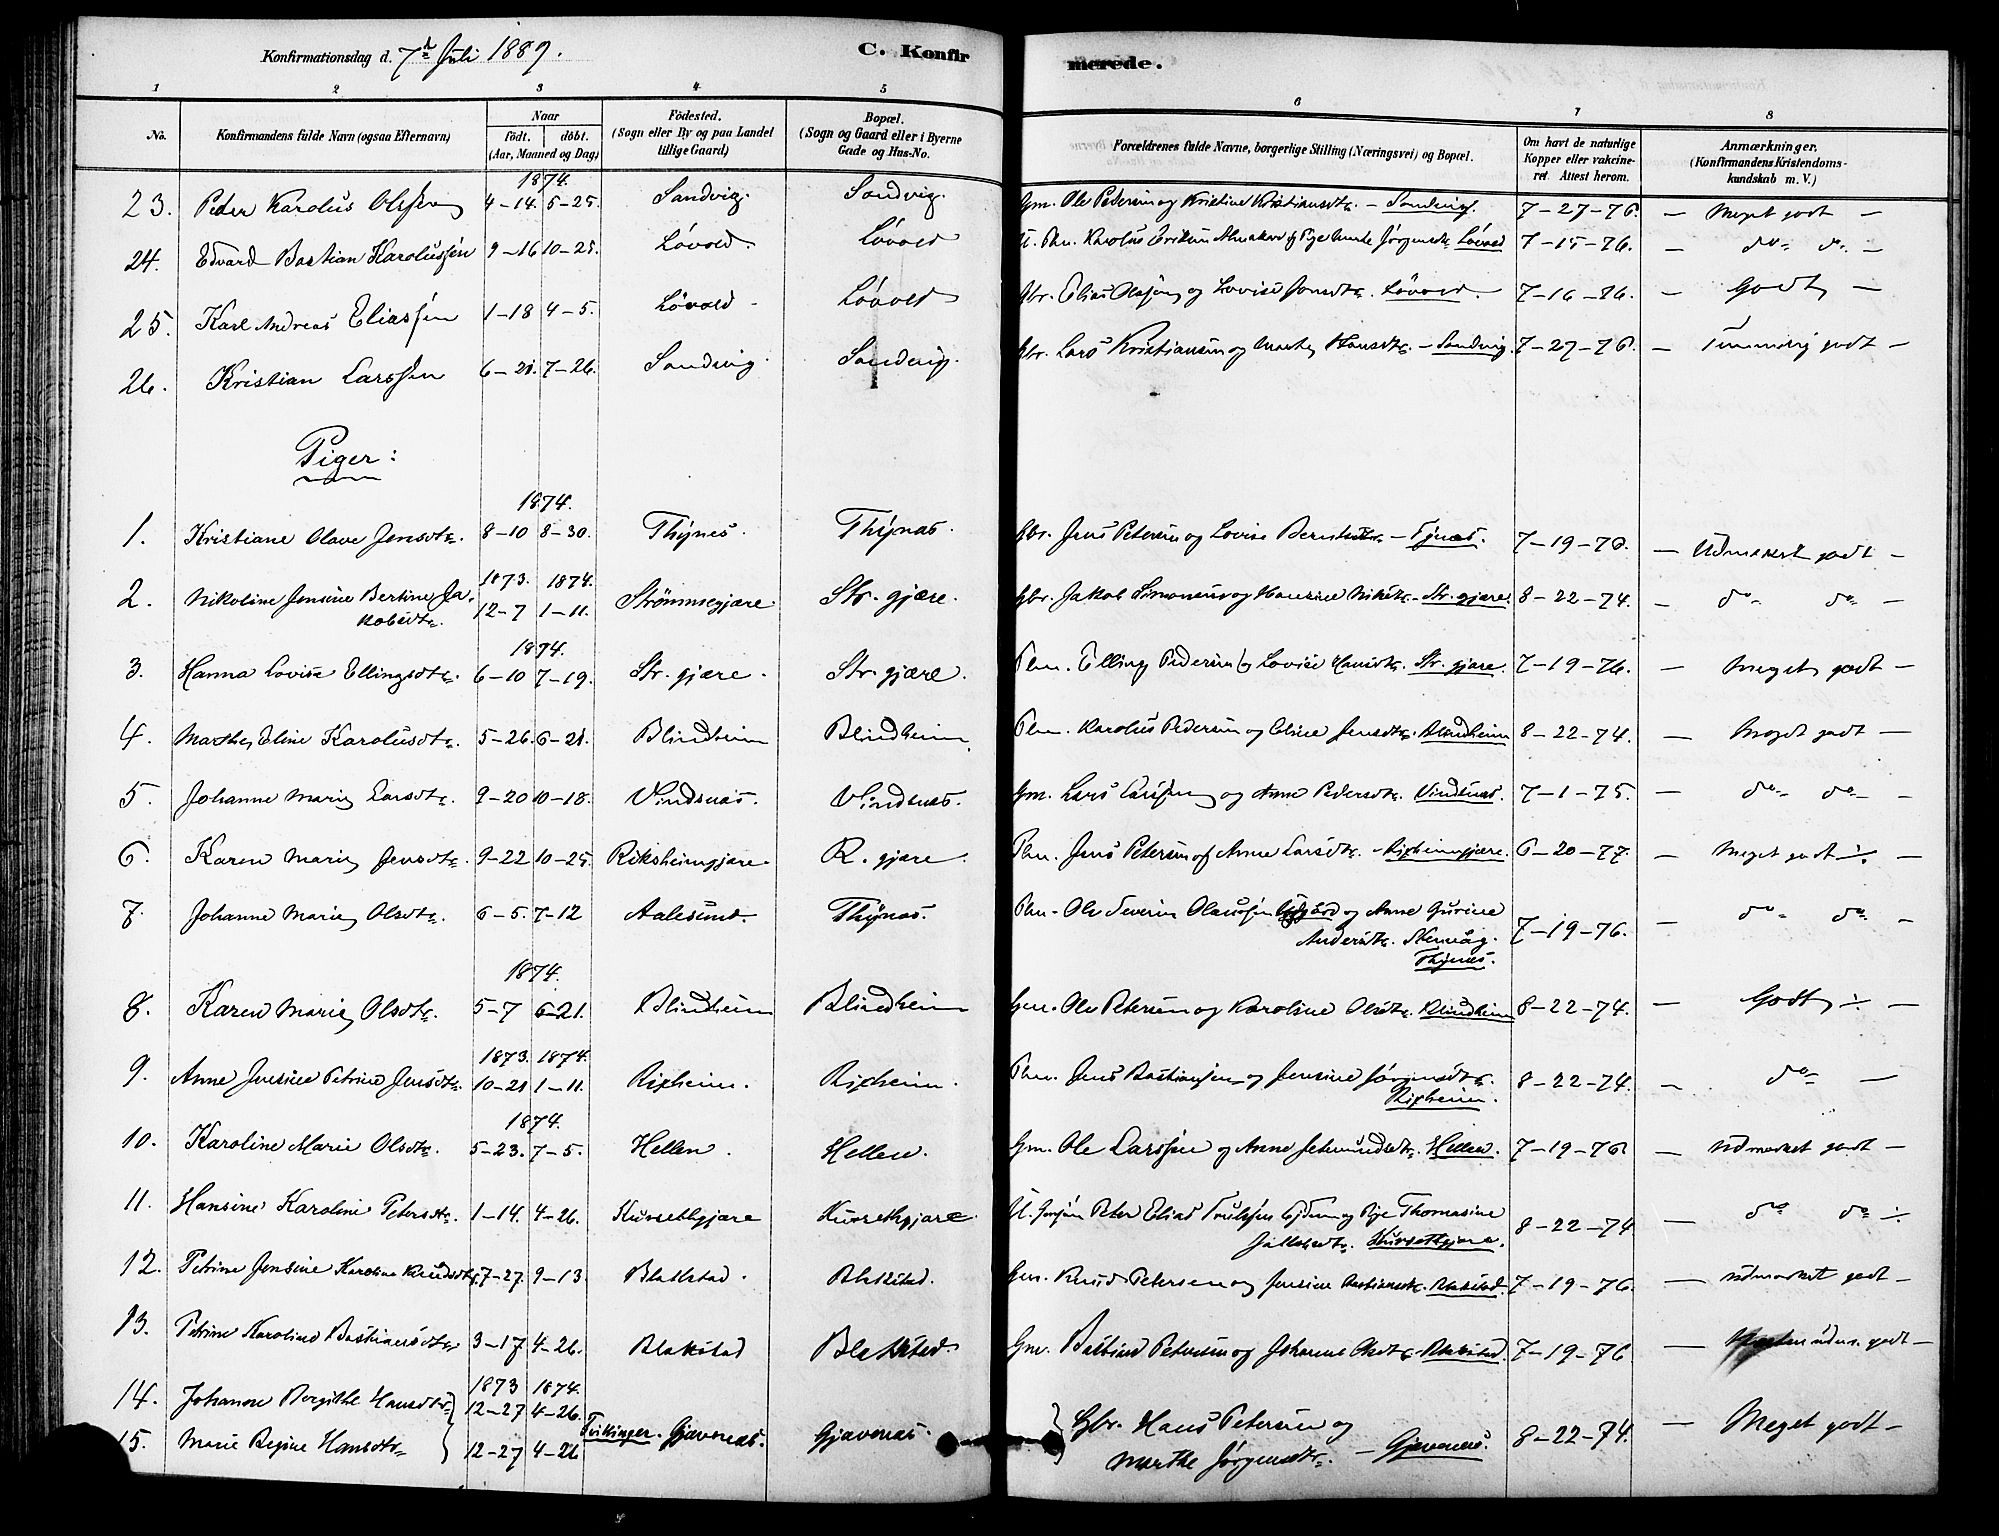 Konfirmationsdag d. 7de Juli 1889.
C. Konfirmerede.
1 2 3 4 5 6 7 8
No. | Konfirmandens fulde Navn (ogsaa Efternavn) | Naar født. døbt. (Aar, Maaned og Dag) | Fødested. (Sogn eller By og paa Landet tillige Gaard) | Bopæl. (Sogn og Gaard eller i Byerne Gade og Hus-No. | Forældrenes fulde Navne, borgerlige Stilling (Næringsvei) og Bopæl. | Om havt de naturlige Kopper eller vakcineret. Attest herom. | Anmærkninger. (Konfirmandens Kristendomskundskab m. V.)
1874.
23. Peder Karolus Olsen 4-14. 5-25. Sandvig. Sandvig. Gm. Ole Pedersen og Kristine Kristiansdtr. - Sandvig. 7-27-76. - Meget godt -
24. Edvard Bastian Karolussen 9-16 10-25. Løvold. Løvold Karolus Eriksen Jørgensdtr. Løvold 7-15-76. - do do -
25. Karl Andreas Eliassen 1-18 4-5. Løvold - Løvold Gbr. Elias Olsen og Lovise Jonsdtr. Løvold. 7-16-76. - Godt -
26. Kristian Larssen 6-21. 7-26. Sandvig. Sandvig. Gbr. Lars Kristiansen og Marthe Hansdtr. - Sandvig. 7-27-76. - Temmelig godt -
Piger:
1874.
1. Kristiane Olave Jensdtr. 8-10 8-30. Thynes. Thynæs. Gbr. Jens Petersen og Lovise Berntsdtr. - Tynæs. 7-19-76. - Udmærket godt -
1873. 1874.
2. Nikoline Jensine Bertine Jakobsdtr. 12-7 1-11. Strømmegjære Str. gjære. Gbr. Jakob Simonsen og Hansine Nilsdtr. - Str. gjære. 8-22-74. - do do -
1874.
3. Hanna Lovise Ellingsdtr. 6-10 7-19. Str. gjære. Str. gjære. Phm. Elling Pedersen og Lovise Hansdtr. Str. gjære. 7-19-76. - Meget godt -
4. Marthe Eline Karolusdtr. 5-26. 6-21. Blindheim Blindheim Phm. Karolus Pedersen og Eline Jensdtr. Blindheim 8-22-74. - Meget godt -
5. Johanne Marie Larsdtr. 9-20 10-18. Vindsnæs. Vindsnæs. Gm. Lars Larssen og Anne Pedersdtr. Vindsnæs. 7-1-75. - do do -
6. Karen Marie Jensdtr. 9-22 10-25. Riksheimgjære. R. gjære. Phm. Jens Petersen og Anne Larsdtr. - Rixheimgjære. 6-20-77. - Meget godt ÷ -
7. Johanne Marie Olsdtr. 6-5. 7-12 Aalesund. Thynæs. Phm. Ole Severin Olaussen og Anne Gurine
Andersdtr.
Thynæs. 7-19-76. - do do -
1874.
8. Karen Marie Olsdtr. 5-7 6-21. Blindheim Blindheim Gm. Ole Petersen og Karoline Olsdtr. Blindheim 8-22-74. - Godt ÷ -
1873. 1874.
9. Anne Jensine Petrine Jensdtr. 10-21 1-11. Rixheim. Rixheim. Phm. Jens Bastiansen og Jensine Jørgensdtr.
Rixheim. 8-22-74. - do -
1874.
10. Karoline Marie Olsdtr. 5-23. 7-5. Hellen. Hellen. Gm. Ole Larssen og Anne Hellen. 7-19-76 - Udmærket godt -
11. Hansine Karoline Petersdtr. 1-14. 4-26. Kursethgjære Kursethgjære. Peter Elias Thomasine
Kursethgjære. 8-22-74 - do do ÷
12. Petrine Jensine Karoline Knudsdtr. 7-27. 9-13. Blakstad. Blakstad. Gm. Knud Petersen og Jensine Bastiansdtr. Blakstad. 7-19-76. - Udmærket godt -
13. Petrine Karoline Bastiansdtr. 3-17 4-26. Blakstad Blakstad Gm. Bastian Petersen og Johanne Olsdtr. Blakstad. 7-19-76 - Næsten udm. godt -
1873 1874.
14. Johanne Bergithe Hansdtr. 12-27 4-26.
15. Marie Regine Hansdtr. 12-27 4-26 Tvillinger. Gjævenæs. Gjævenæs. Gbr. Hans Petersen og
Marthe Jørgensdtr. - Gjævenæs. 8-22-74. - Meget godt -